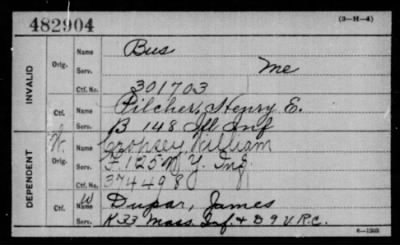 482904 (3-H-4)
INVALID
Orig.
Name Bus
Serv. me
Ctf. No. 301703
Ctf.
Name Pilcher, Henry E.
Serv. B 148 Ill Inf
DEPENDENT
Orig.
W. Name Cropsey William
Serv. F. 125 N.Y. Inf.
Ctf. No. 374498
Ctf.
W Name Dupar, James
Serv. K 33 Mass. Inf & D 9 V.R.C.